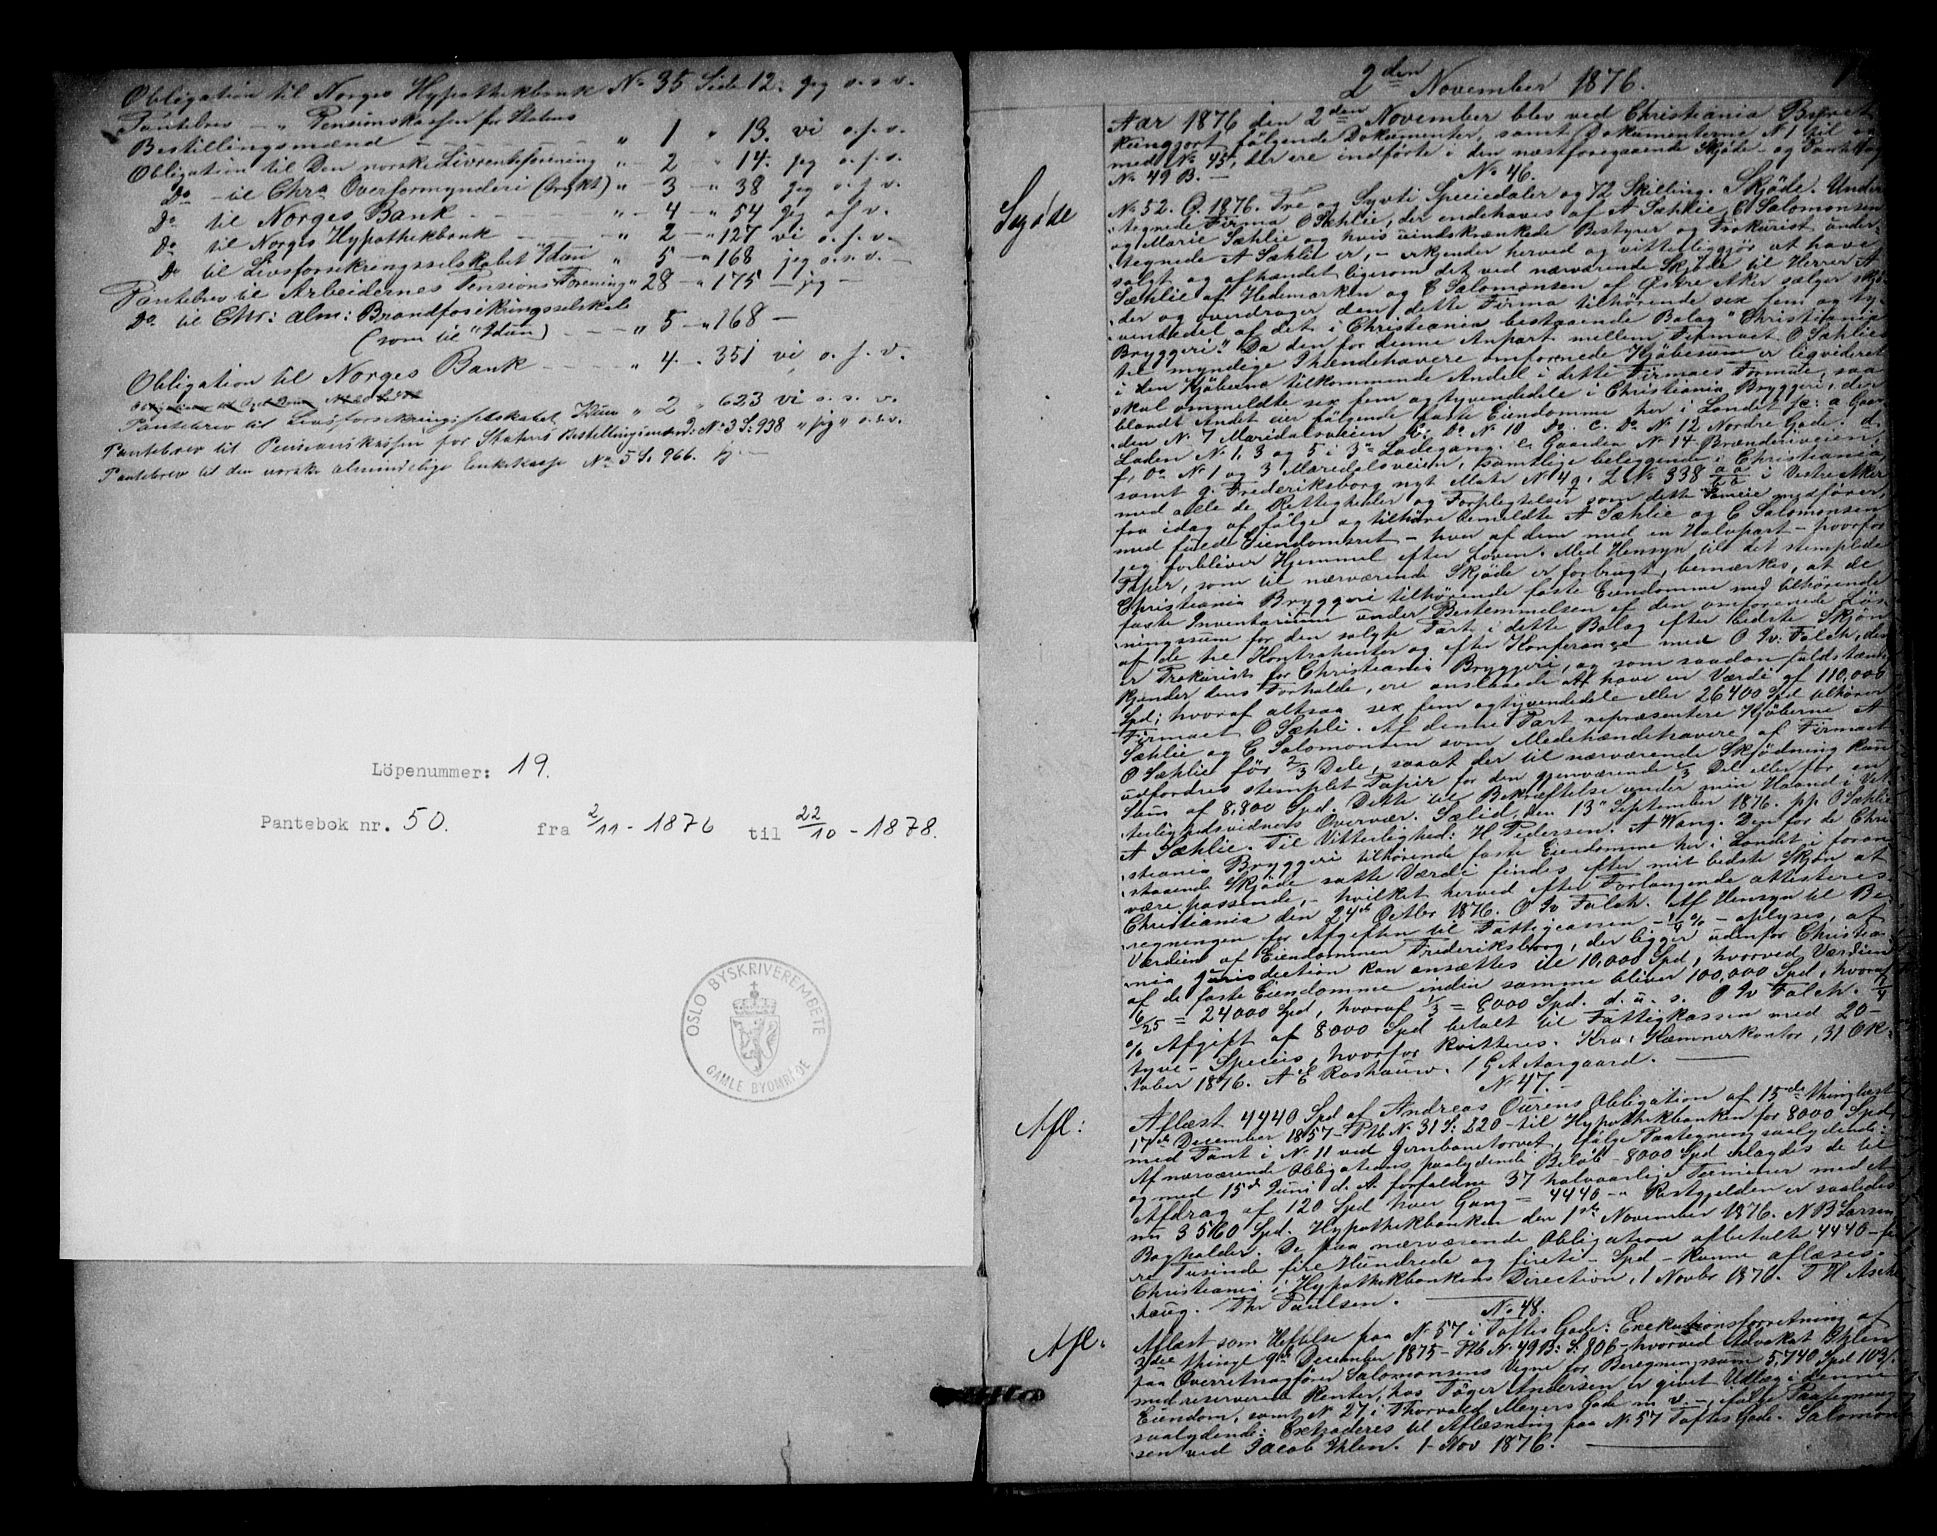 Obligation til Norges Hypothekbank No 35 Side 12. jeg o.s.v.
Pantebrev – " Pensionskassen for Statens
Bestillingsmænd – – – " 1 " 13. vi o.s.v.
Obligation til Den norske Livrenteforening " – 2 – " 14. jeg o.s.v.
Do – til Chra Overformynderi (trykt) " – 3 – " 38 jeg o.s.v.
Do til Norges Bank – – – – " – 4 – " 54 jeg o.s.v.
Do til Norges Hypothekbank – – – " – 2 – " 127 vi o.s.v.
Do til Livsforsikringsselskabet "Idun" " 5 – " 168 jeg o.s.v.
Pantebrev til Arbeidernes Pensions Forening " 28 – " 175 – jeg –
Do til Chr: alm: Brandforsikringsselskab
(som til "Idun) – – – " 5 – " 168 –
Obligation til Norges Bank – – – – " 4 – " 351 vi o.s.v.
Pantebrev til Livsforsikringsselskabet Idun " 2 " 623 vi o.s.v.
Pantebrev til Pensionskassen for Statens Bestillingsmænd: No 3 S. 938 "jeg" o.s.v.
Pantebrev til den norske almindelige Enkekasse No 5 S. 966.
Löpenummer: 19.
Pantebok nr. 50. fra 2/11 - 1876 til 22/10 - 1878.
OSLO BYSKRIVEREMBETE
GAMLE BYOMRÅDE
2den November 1876.
Aar 1876 den 2den November blev ved Christiania Byret
kundgjort følgende Dokumenter, samt Dokumenterne No 1 til og
med No 45, der ere indførte i den næstforegaaende Skjøde- og Pantebog
No 49 B. –
No 46.
Skjøde
No 52. G. 1876. Tre og Syvti Speciedaler og 72 Skilling. Skjøde. Under-
tegnede Firma O Sæhlie, der indehaves af A Sæhlie, C Salomonsen
og Marie Sæhlie og hvis uindskrænkede Bestyrer og Prokurist under-
tegnede A Sæhlie er, – erkjender herved og vitterliggjør at have
solgt og afhændet ligesom det ved nærværende Skjøde til Herrer A
Sæhlie af Hedemarken og C Salomonsen af Østre Aker sælger skjø-
der og overdrager den dette Firma tilhørende sex fem og ty-
vendedel af det i Christiania bestaaende Bolag "Christiania
Bryggeri." Da den for denne Anpart mellem Firmaet O Sæhlies
tre myndige Ihændehavere omforenede Kjøbesum er ligvideret
i den Kjøberne tilkommende Andel i dette Firmaes Formue, saa
skal ommeldte sex fem og tyvendedele i Christiania Bryggeri, der
blandt Andet eier følgende faste Eiendomme her i Landet sc: a Gaar-
den No 7 Maridalsveien b. Do No 10 Do. c. Do No 12 Nordre Gade. d.
Laden No 1, 3 og 5 i 3de Ladegang. e. Gaarden No 14 Brænderiveien,
f. Do No 1 og 3 Maridalsveien, samtlige beliggende i Christiania
samt g. Frederiksborg nyt Matr No 49. L No 338 i Vestre Aker
med alle de Rettigheder og Forpligtelser som dette Sameie medfører,
fra idag af følge og tilhøre bemeldte A Sæhlie og C Salomonsen
med fuld Eiendomsret – hver af dem med en Halvpart – hvorfor
jeg forbliver Hjemmel efter Loven. Med Hensyn til det stemplede
Papir, som til nærværende Skjøde er forbrugt, bemærkes, at de
Christiania Bryggeri tilhørende faste Eiendomme med tilhørende
faste Inventarium under Bestemmelsen af den omforenede Løs-
ningssum for den solgte Part i dette Bolag efter bedste Skjøn
af de tre Kontrahenter og efter Konferance med O Iv: Falck, der
er Prokurist for Christiania Bryggeri, og som saadan fuldstændig
kjender dens Forholde, ere anslaaede at have en Værdi af 110,000
Spd; hvoraf altsaa sex fem ogtyvendedele eller 26400 Spd tilhører
Firmaet O Sæhli. Af denne Part repræsentere Kjøberne A
Sæhlie og C Salomonsen som Medehændehavere af Firmaet
O Sæhlie før 2/3 Dele, saaat der til nærværende Skjødning kun
udfordres stemplet Papir for den gjenværende 1/3 Del eller for en
Sum af 8,800 Spd. Dette til Bekræftelse under min Haand i Vit-
terlighedsvidners Overvær. Sælid, den 13de September 1876. pp. O Sæhlie
A Sæhlie. Til Vitterlighed: H Pedersen. A Wang. Den for de Chri-
stiania Bryggeri tilhørende faste Eiendomme her i Landet i foran-
staaende Skjøde satte Værdi findes efter mit bedste Skjøn at
være passende, – hvilket herved efter Forlangende attesteres.
Christiania den 24de Octbr 1876. O Iv Falck. Af Hensyn til Be-
regningen for Afgiften til Fattigcassen – 1/4 % – oplyses, at
Værdien af Eiendommen Frederiksborg, der ligger udenfor Christia-
nia Jurisdiction kan ansættes til 10,000 Spd, hvorved Værdien
af de faste Eiendomme inden samme bliver 100,000 Spd, hvoraf
6/25 = 24000 Spd, hvoraf 1/3 = 8000 Spd. d. u. s. O Iv Falck. 1/4
% Afgift af 8000 Spd betalt til Fattigkassen med 20 –
tyve – Species, hvorfor kvitteres. Kra: Kæmnerkontor, 31 Ok-
tober 1876. A E Roshauw. / G A Aargaard.
No 47.
Afl:
Aflæst 4440 Spd af Andreas Ourens Obligation af 15de thinglæst
17de December 1857 – Ptb No 31 S: 220 – til Hypothekbanken for 8000 Spd
med Pant i No 11 ved Jernbanetorvet, ifølge Paategning saalydende:
Af nærværende Obligations paalydende Beløb – 8000 Spd erlagdes de til
og med 15de Juni d. A. forfaldne 37 halvaarlige Terminer med et
Afdrag af 120 Spd hver Gang = 4440 – " Restgjelden er saaledes
nu 3560 Spd. Hypothekbanken den 1ste November 1876. N B Larsen
Bogholder. De paa nærværende Obligation afbetalte 4440 – fi-
re Tusinde fire Hundrede og fireti – Spd – kunne aflæses.
Christiania i Hypothekbankens Direction, 1 Novbr 1876. T H Asche-
haug. Thr Paulsen.
No 48.
Afl:
Aflæst som Heftelse paa No 57 i Toftes Gade: Exekutionsforretning af
2den thingl 9de December 1875 – Ptb No 49 B: S. 806 – hvorved Advokat Ihlen
paa Overretssagfører Salomonsens Vegne for Beregningssum 5,740 Spd 103 s.
med reserverede Renter, hos Tøger Andersen er givet Udlæg i denne
Eiendom, samt No 27 i Thorvald Meyers Gade m v. –, ifølge Paategning
saalydende: Extraderes til Aflæsning paa No 57 Toftes Gade. Salomon-
sen ved Jacob Ihlen. 1 Nov 1876.